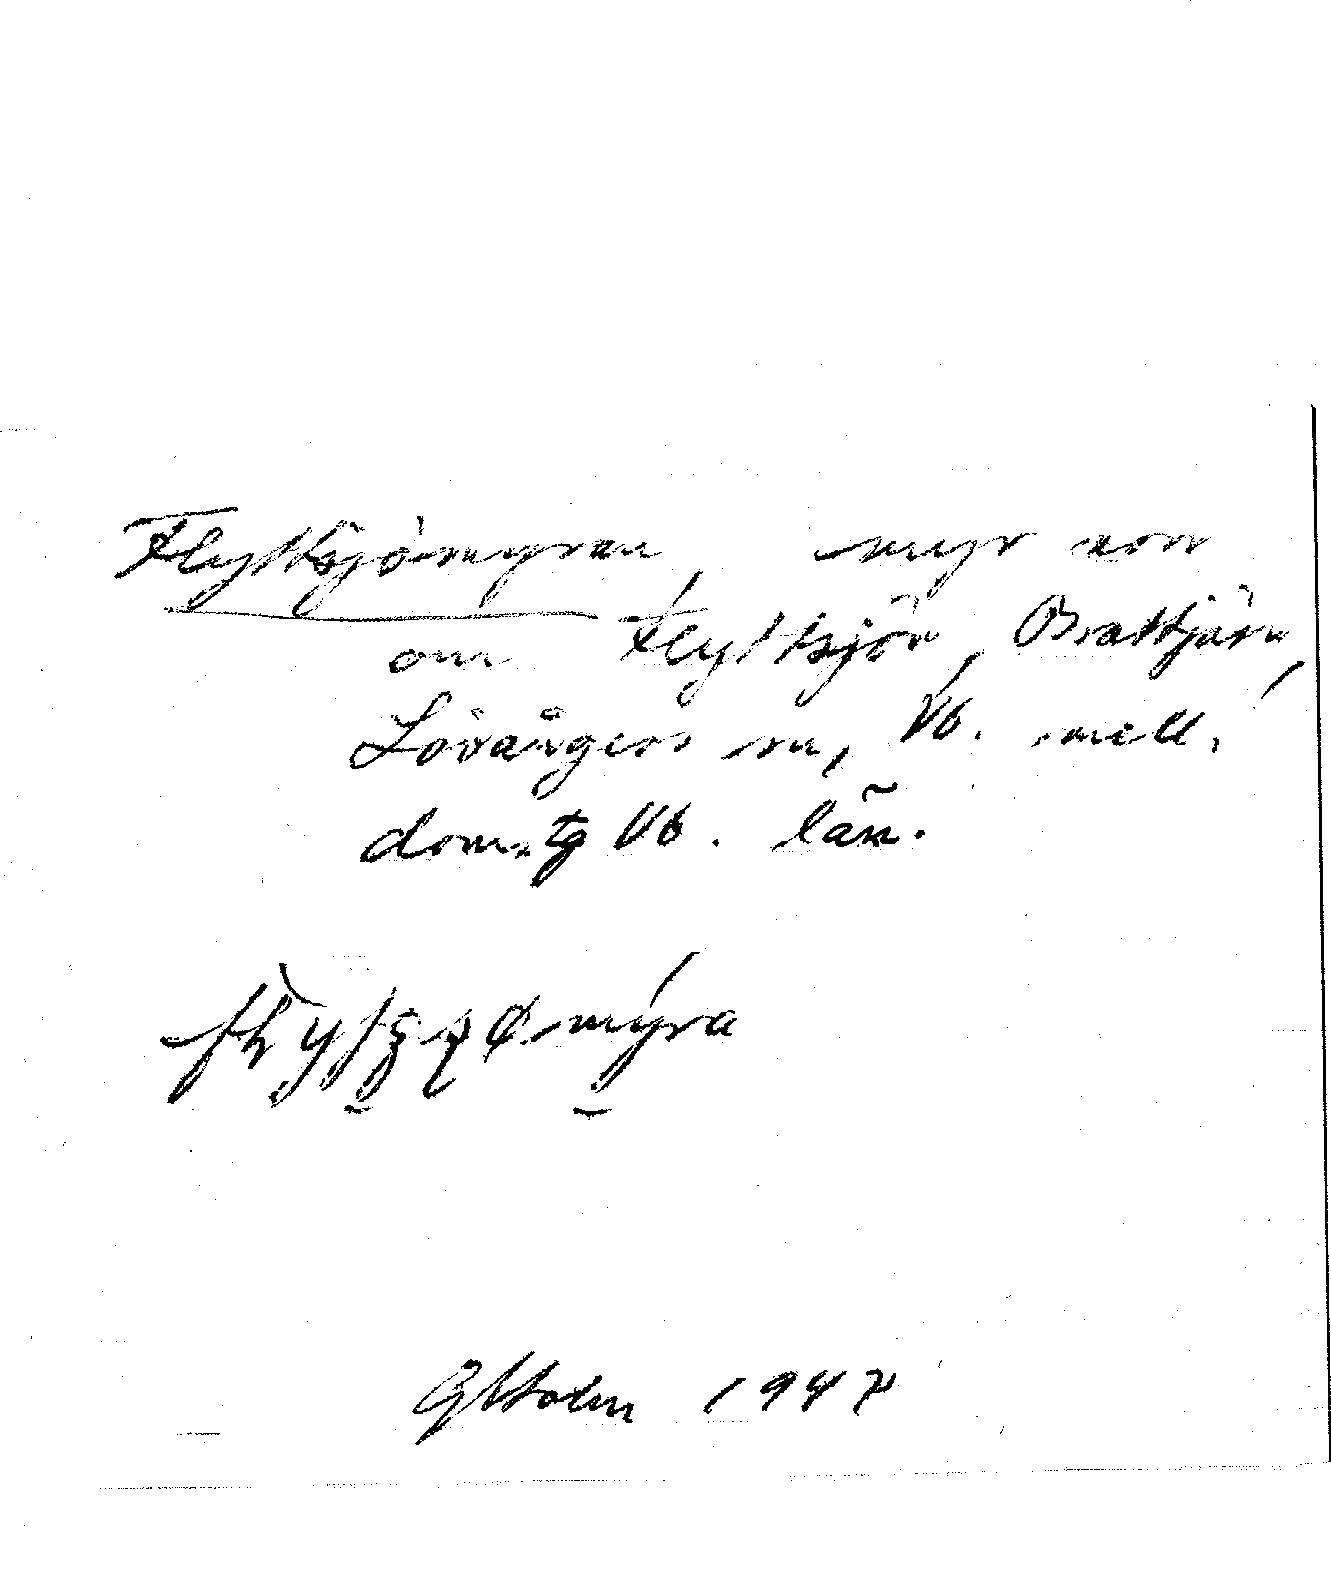 Flyttsjömyran, myr norr
om Flyttsjön, Brattjärn,
Lövångers sn, Vb. mell.
doms.tg Vb. län.
GHolm 1947